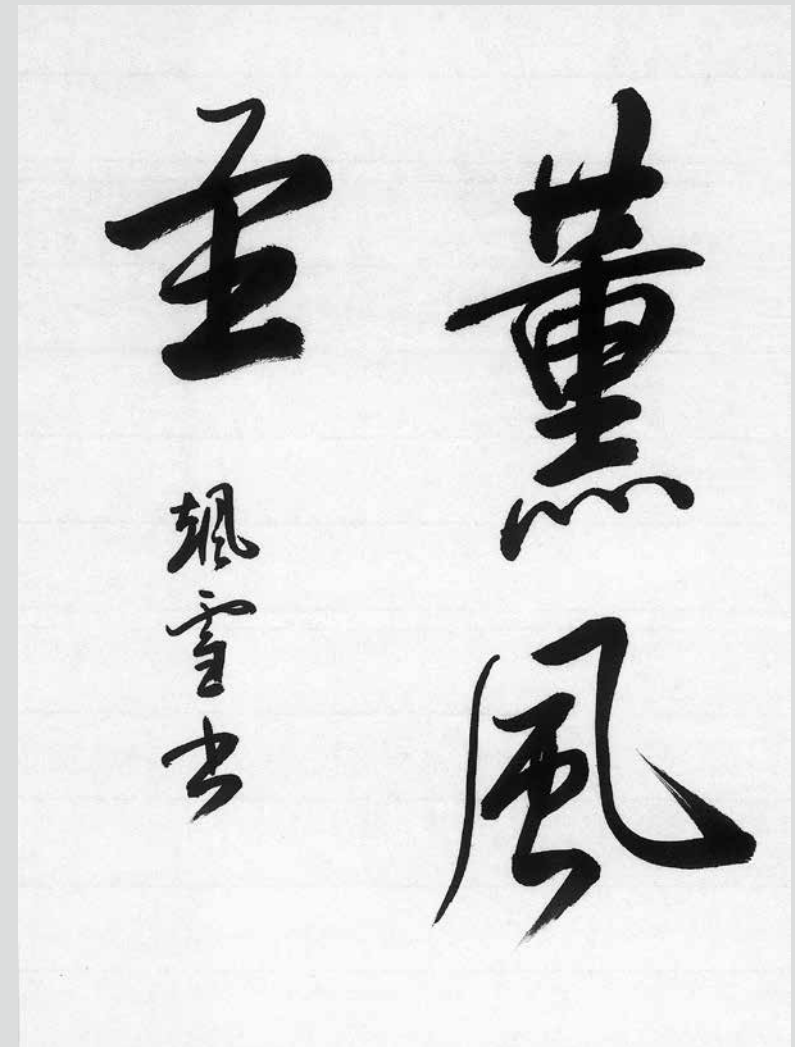 薫風
至
颯雪书